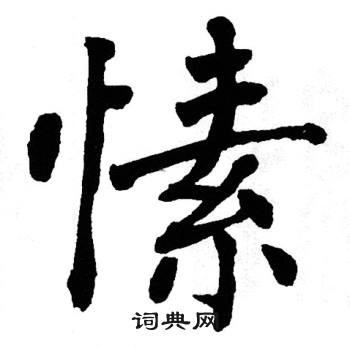 愫
词典网